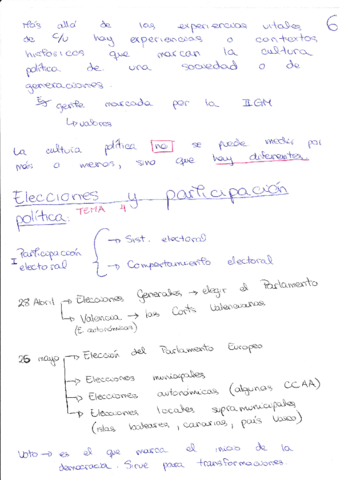 6
Más allá de las experiencias vitales
de c/u hay experiencias o contextos
históricos que marcan la cultura
política de una sociedad o de
generaciones.
↳ gente marcada por la II GM
↳ valores
La cultura política no se puede medir por
más o menos, sino que hay diferentes
Elecciones y participación
política: TEMA 4
I Participación electoral
→ Sist. electoral
→ Comportamiento electoral
28 Abril → Elecciones Generales → elegir al Parlamento
→ Valencia → las Corts Valencianas
(E. autonómicas)
26 mayo → Elección del Parlamento Europeo
→ Elecciones municipales
→ Elecciones autonómicas (algunas CCAA)
→ Elecciones locales supramunicipales
(islas baleares, canarias, país vasco)
Voto → es el que marca el inicio de la
democracia. Sirve para transformaciones.